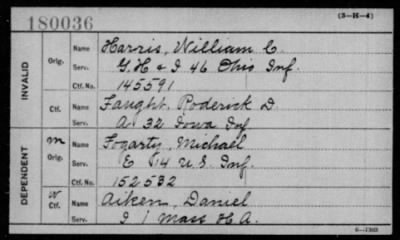 180036 (3-H-4)
INVALID
Orig. Name Harris, William C.
Serv. G. H & I 46 Ohio Inf.
Ctf. No. 145591
Ctf. Name Faught, Roderick D
Serv. A 32 Iowa Inf
DEPENDENT
m Orig. Name Fogarty, Michael
Serv. E 14 U.S. Inf.
Ctf. No. 152532
Ctf. Name Aiken, Daniel
Serv. I 1 Mass H A.